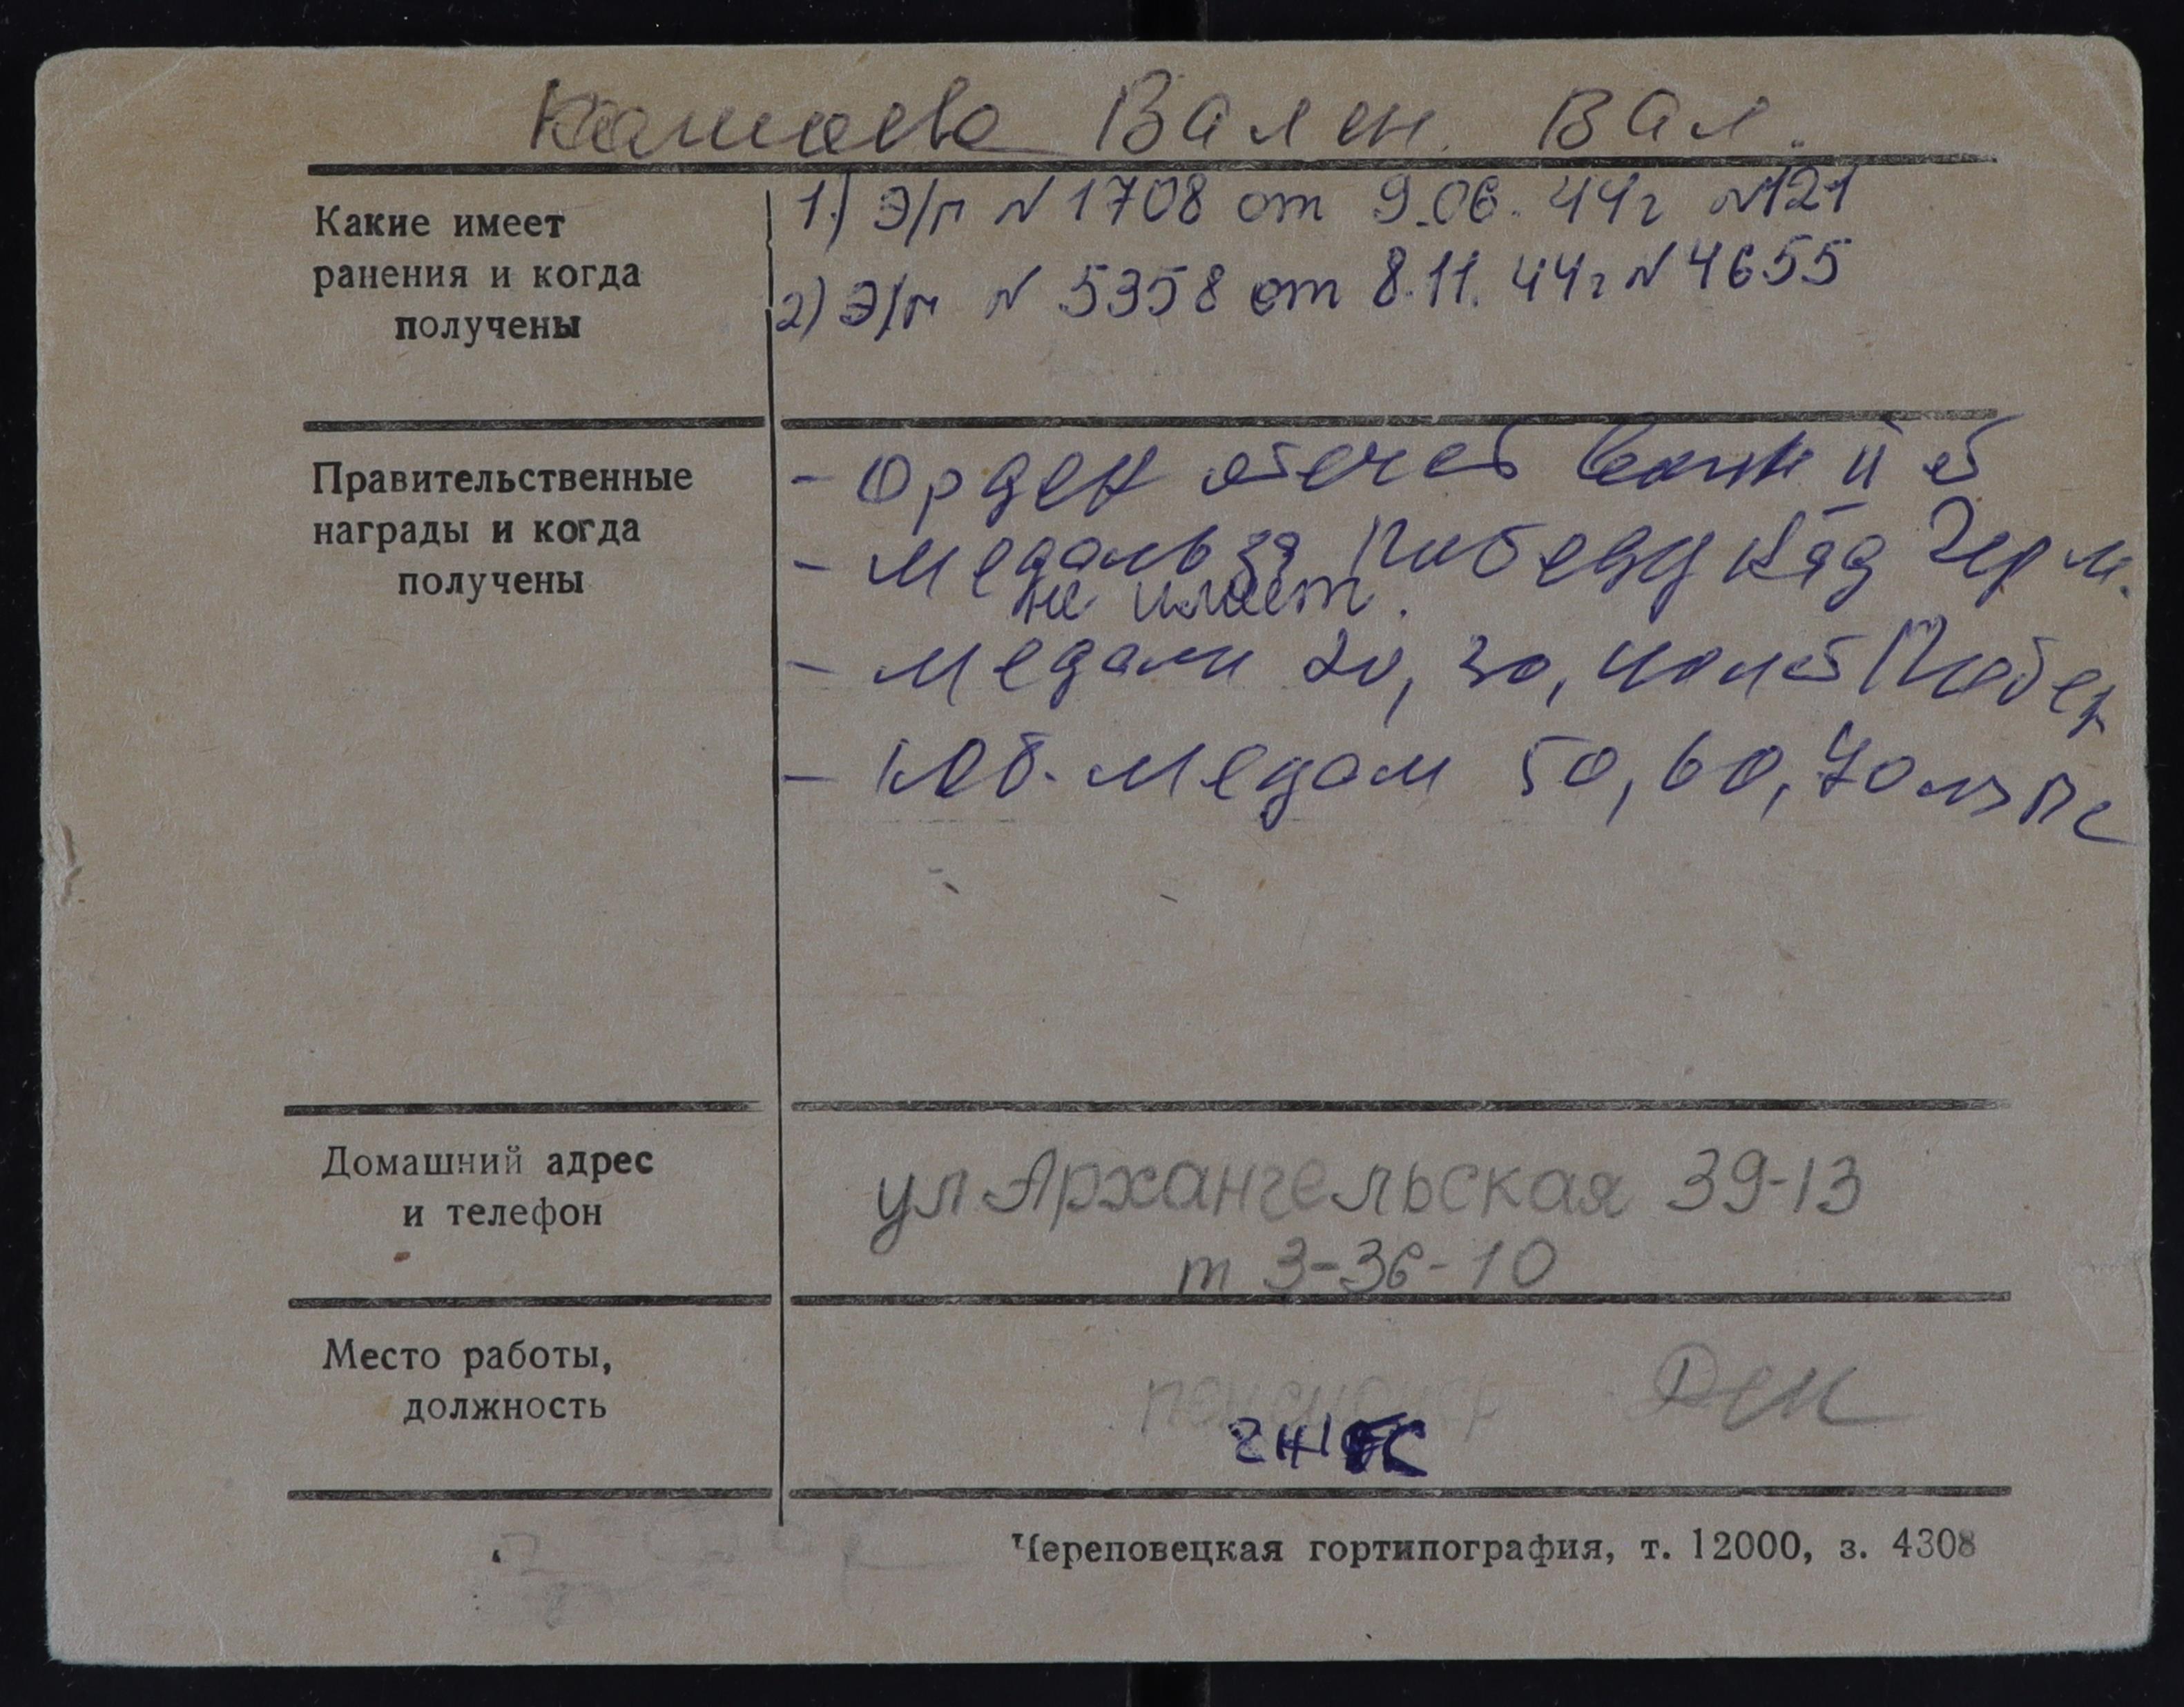 Вален. Вал.
Какие имеет
ранения и когда
получены
1.) Э/п N 1708 от 9.06.44г N121
2) Э/п N 5358 от 8.11.44г N 4655
Правительственные
награды и когда
получены
- Орден отечеств войн II ст
- медаль за Победу над Герм.
не имеет.
- медали 20, 30, 40 лет Побед
- Юб. медали 50, 60, 70 лет
Домашний адрес
и телефон
ул Архангельская 39-13
т 3-36-10
Место работы,
должность
пенсионер
Череповецкая гортипография, т. 12000, з. 4308